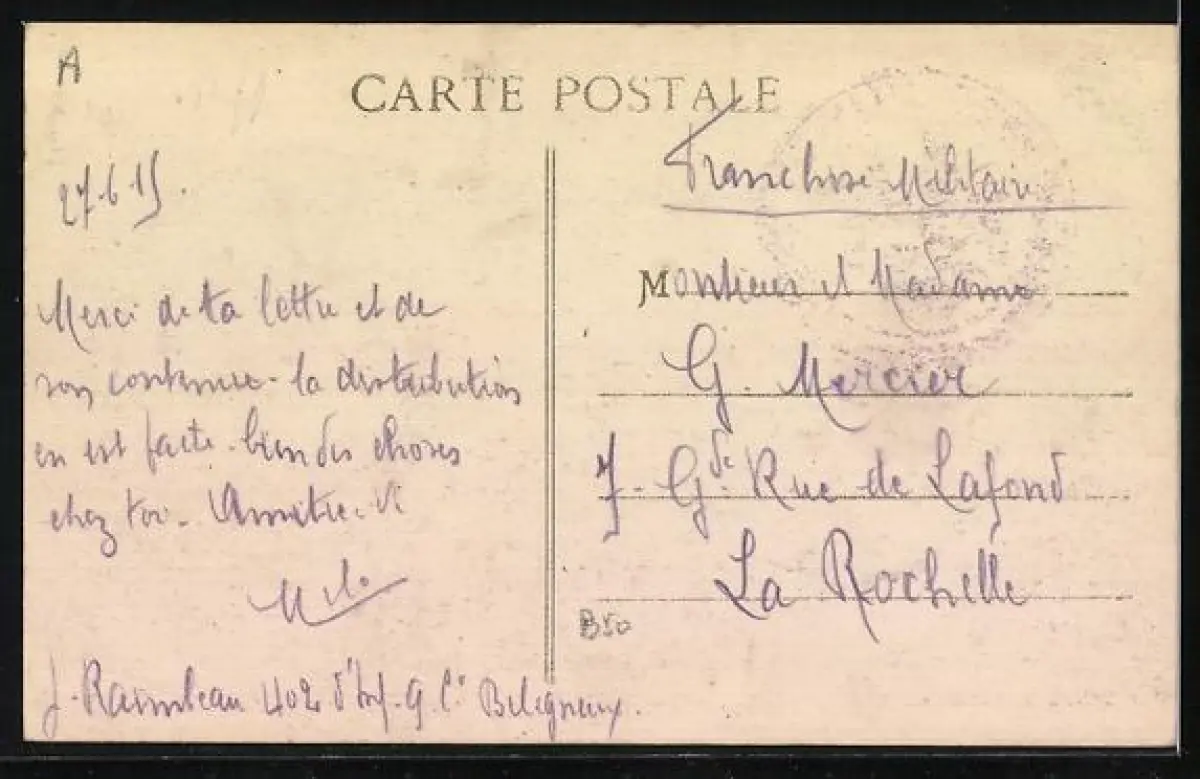 A
CARTE POSTALE
27.6.15.
Merci de ta lettre et de
son contenu. la distribution
en est faite. bien des choses
chez toi. Amitié.
J. Raimbeau 402 d'Inf. 9 Cie Beligneux.
B50
Franchise Militaire
Monsieur et Madame
G. Mercier
7. Gde Rue de Lafond
La Rochelle